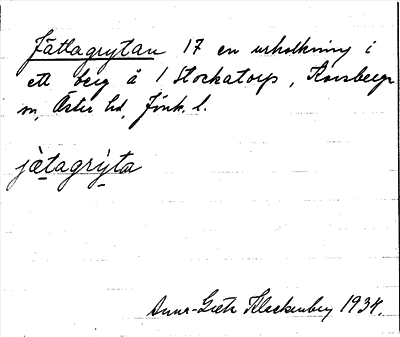 Jättagrytan 17 en urholkning i
ett berg å 1 Stockatorp, Korsberga
sn, Östra hd, Jönk. l.
jätagrýta
Anna-Greta Kleckenberg 1934.